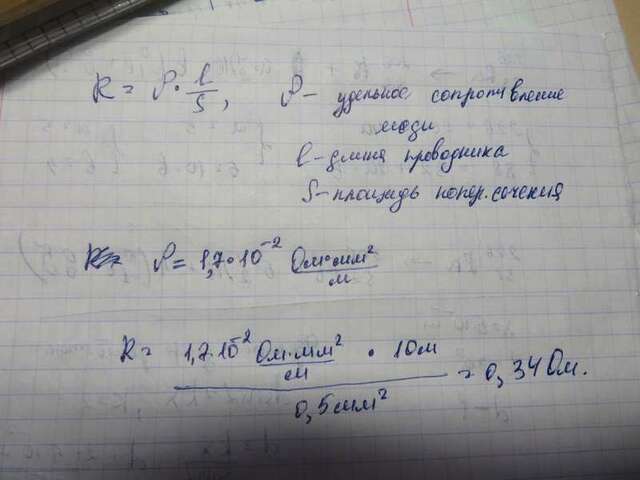 R = ρ · l/S, ρ - удельное сопротивление
меди
l - длина проводника
S - площадь попер. сечения
ρ = 1,7 · 10⁻² Ом·мм²/м
R = 1,7 · 10⁻² Ом·мм²/м · 10м / 0,5мм² = 0,34 Ом.